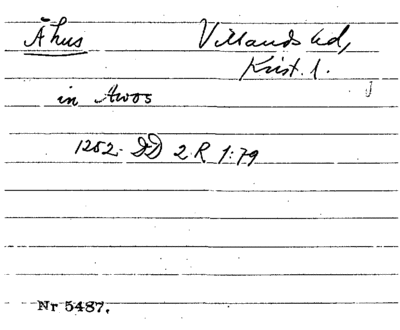 Åhus Villands hd,
Krist. l.
in Awos
1252 DD 2 R 1:79
Nr 5487.